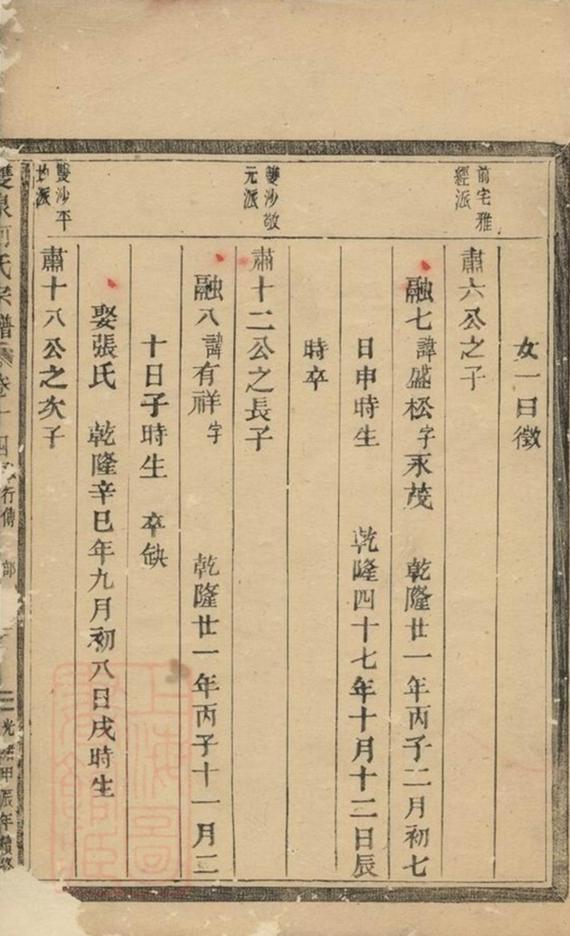 女一曰徵
前宅雅
經派
肅六公之子
融七諱盛松字永茂 乾隆廿一年丙子二月初七
日申時生 乾隆四十七年十月十二日辰
時卒
雙沙敬
元派
肅十二公之長子
融八諱有祥字 乾隆廿一年丙子十一月二
十日子時生 卒缺
娶張氏 乾隆辛巳年九月初八日戌時生
雙沙平
派
肅十八公之次子
雙泉 氏宗譜 卷十四 行傳 部
光緒甲辰年續修